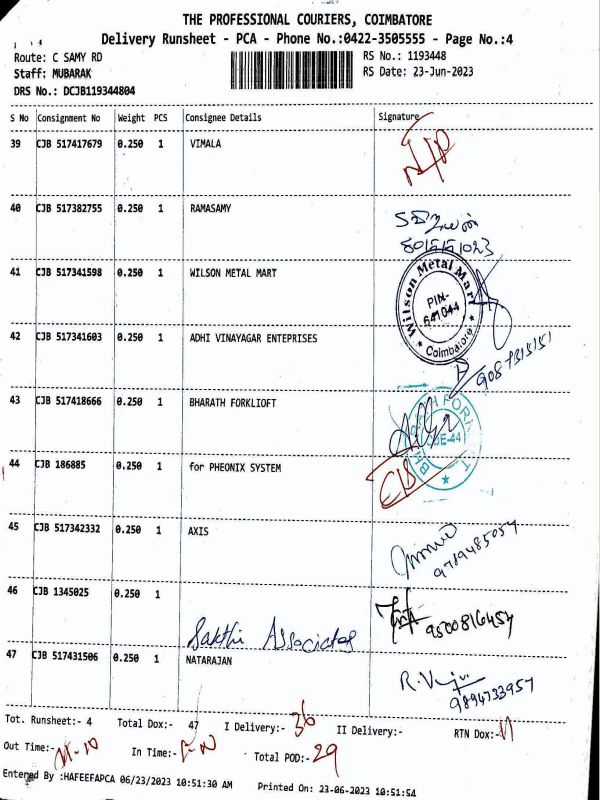 THE PROFESSIONAL COURIERS, COIMBATORE
Delivery Runsheet - PCA - Phone No.:0422-3505555 - Page No.:4
Route: C SAMY RD
RS No.: 1193448
Staff: MUBARAK
RS Date: 23-Jun-2023
DRS No.: DCJB119344804
S No Consignment No Weight PCS Consignee Details Signature
39 CJB 517417679 0.250 1 VIMALA
40 CJB 517382755 0.250 1 RAMASAMY
41 CJB 517341598 0.250 1 WILSON METAL MART
Wilson Metal Mart
PIN-
641044
* Coimbatore *
42 CJB 517341603 0.250 1 ADHI VINAYAGAR ENTEPRISES
43 CJB 517418666 0.250 1 BHARATH FORKLIOFT
44 CJB 186885 0.250 1 for PHEONIX SYSTEM
45 CJB 517342332 0.250 1 AXIS
9789485057
46 CJB 1345025 0.250 1
Sakthi Associates
9500816457
47 CJB 517431506 0.250 1 NATARAJAN
9894733957
Tot. Runsheet:- 4 Total Dox:- 47 I Delivery:- 36 II Delivery:- RTN Dox:- 11
Out Time:- 11-10 In Time:- Total POD:- 29
Entered By :HAFEEFAPCA 06/23/2023 10:51:30 AM Printed On: 23-06-2023 10:51:54